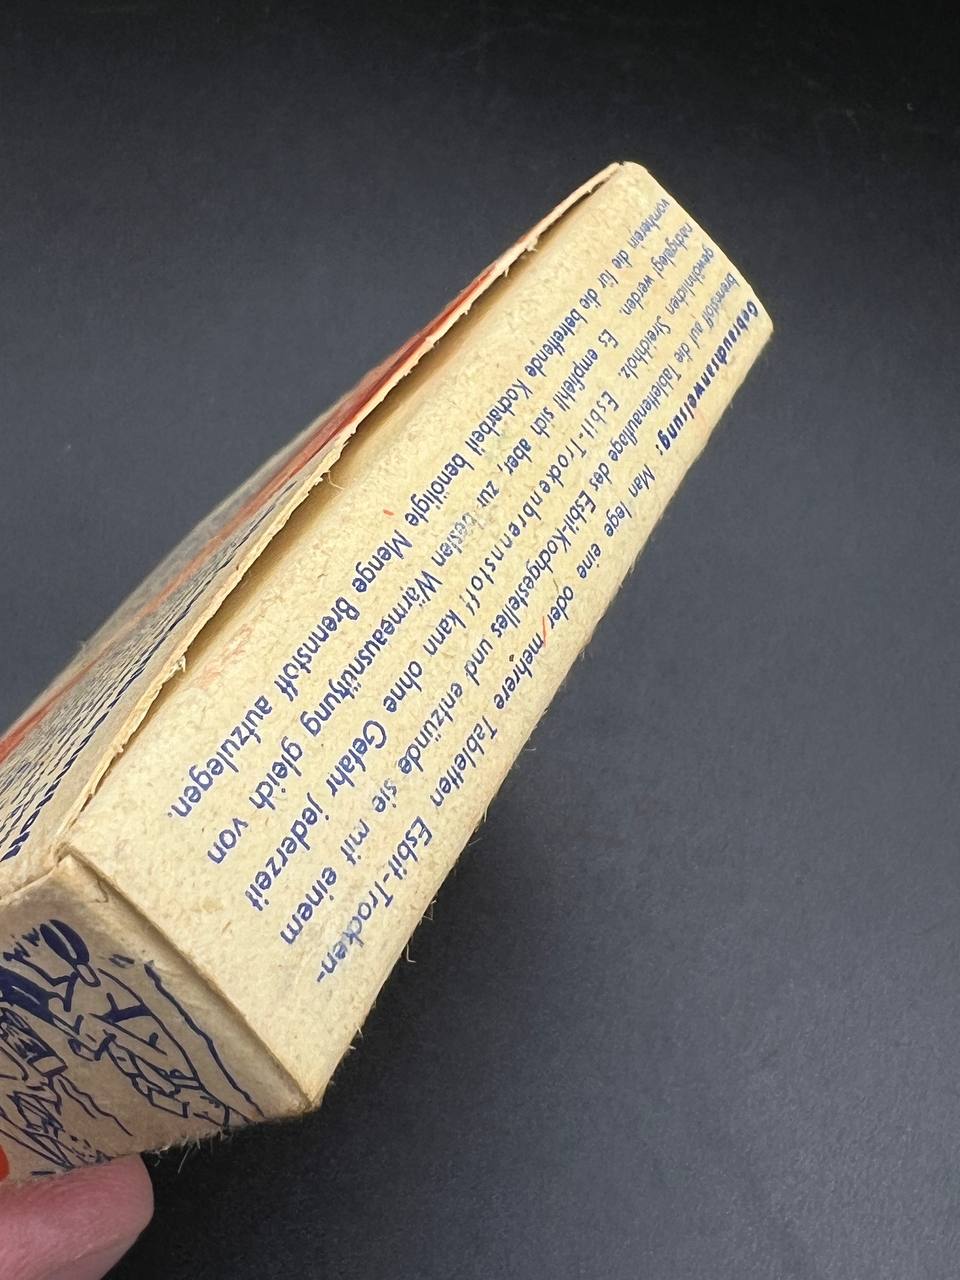 Gebrauchsanweisung: Man lege eine oder mehrere Tabletten Esbit-Trocken-
brennstoff auf die Tablettenauflage des Esbit-Kochgestelles und entzünde sie mit einem
gewöhnlichen Streichholz. Esbit-Trockenbrennstoff kann ohne Gefahr jederzeit
nachgelegt werden. Es empfiehlt sich aber, zur besten Wärmeausnützung gleich von
vornherein die für die betreffende Kocharbeit benötigte Menge Brennstoff aufzulegen.